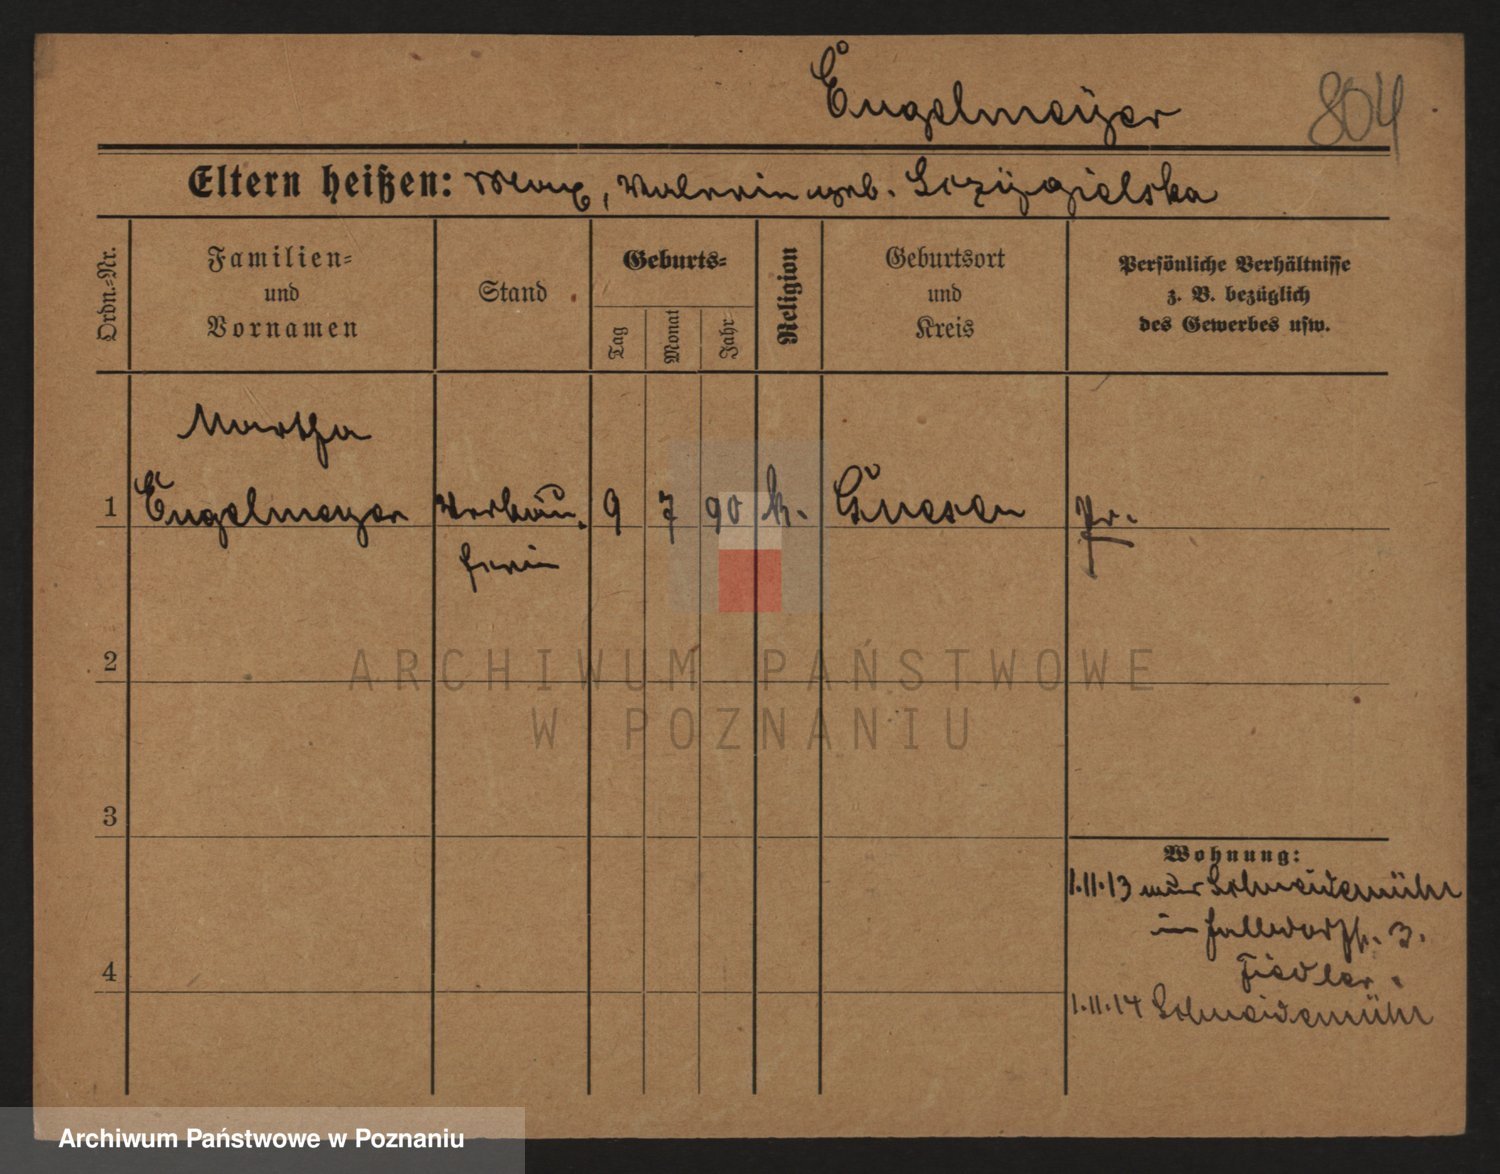 Engelmeyer
804
Eltern heißen: Max, geb.
Ordn.-Nr.
Familien-
und
Vornamen
Stand
Geburts-
Tag
Monat
Jahr
Religion
Geburtsort
und
Kreis
Persönliche Verhältnisse
z. B. bezüglich
des Gewerbes usw.
Martha
1 Engelmeyer Verkäu- 9 7 90 k. Gnesen Pr.
ferin
2
3
4
Wohnung:
1.11.13 Schneidemühl
3.
Fiedler
1.11.14 Schneidemühl
ARCHIWUM PAŃSTWOWE
W POZNANIU
Archiwum Państwowe w Poznaniu